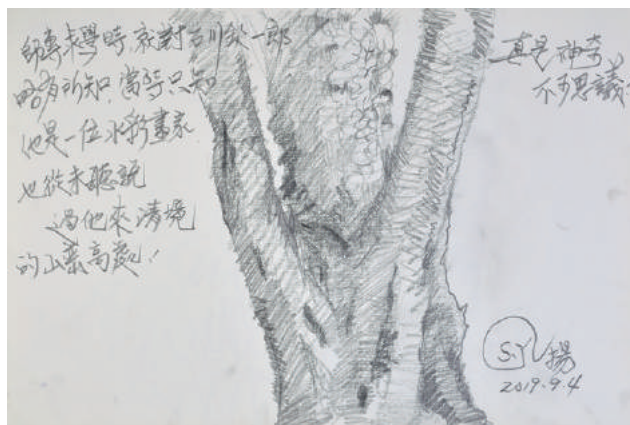 師專求學時,就對石川欽一郎
略有所知,當時只知
他是一位水彩畫家
也從未聽說
過他來清境
的山葉高歌!
真是神奇
不可思議!
S.Y 揚
2019.9.4